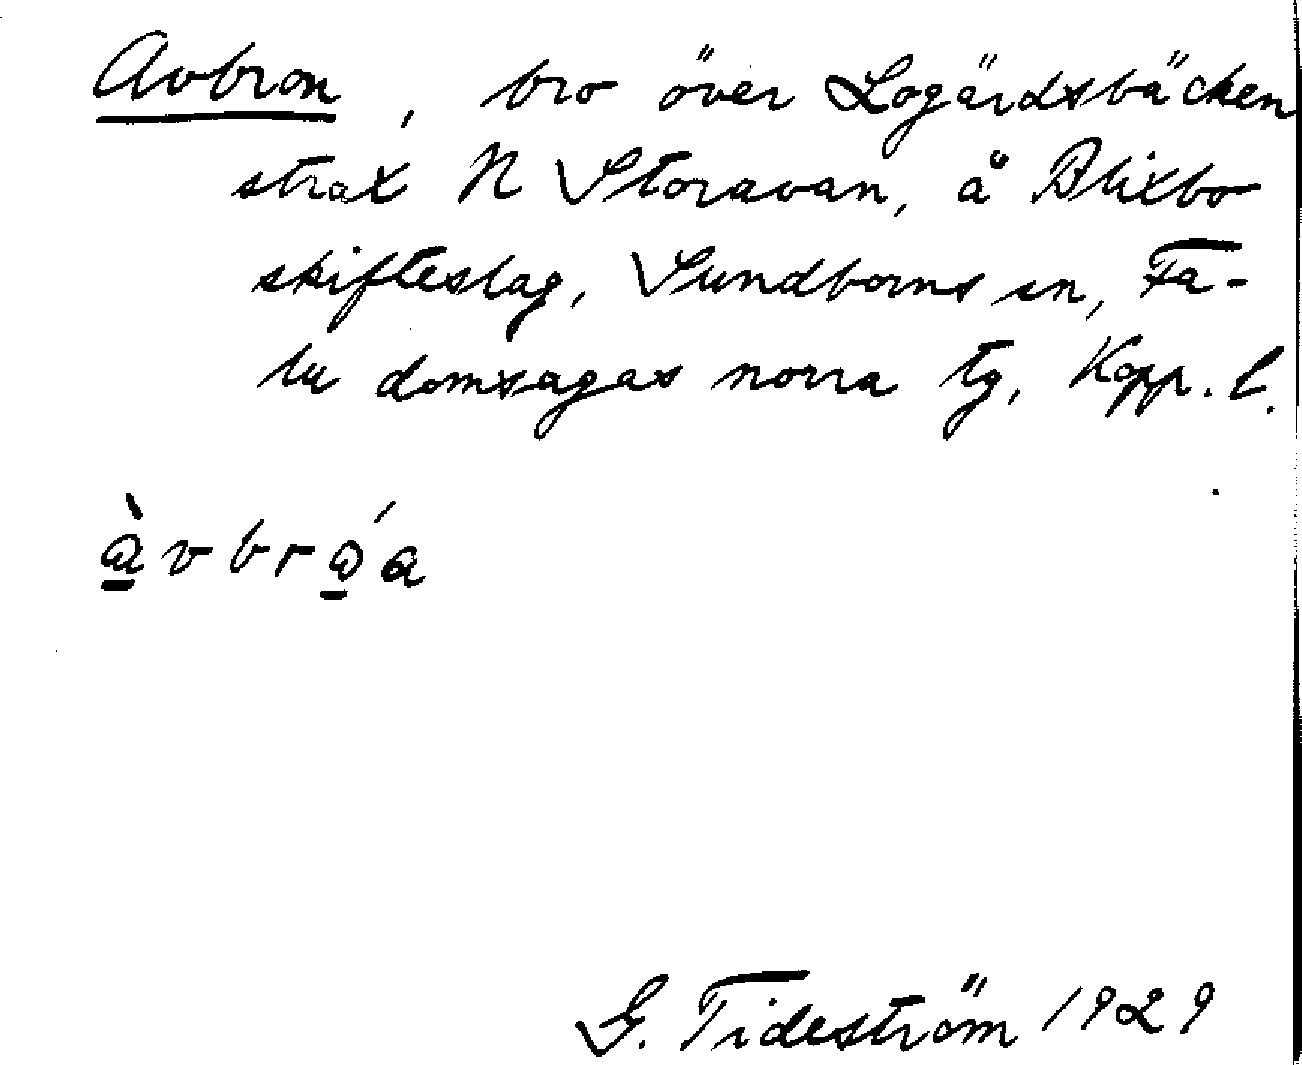 Avbron, bro över Logärdsbäcken
strax N Storavan, å Blixbo
skifteslag, Sundborns sn, Fa-
lu domsagas norra tg, Kopp. l.
G. Tideström 1929